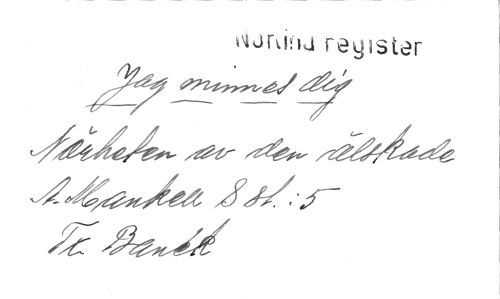 Norlind register
Jag minnes dig
Närheten av den älskade
A. Mankell S st. : 5
Tr. Banck